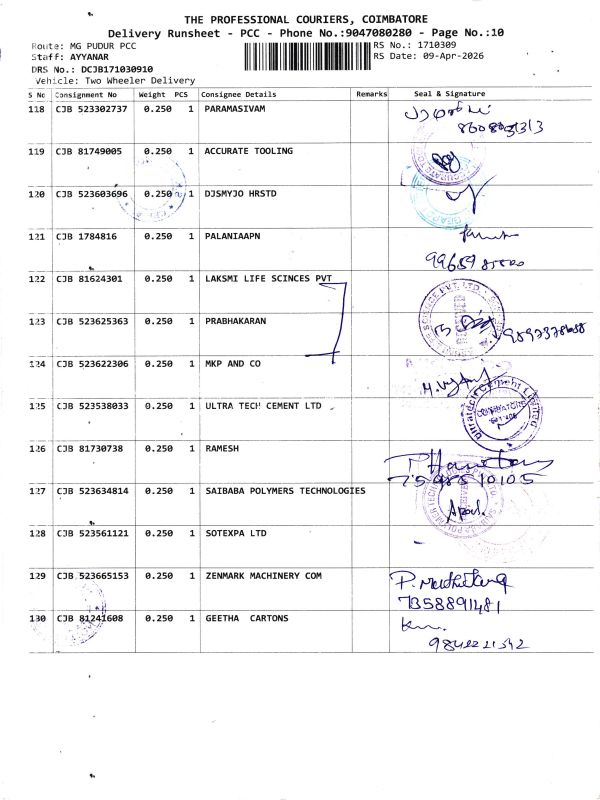 THE PROFESSIONAL COURIERS, COIMBATORE
Delivery Runsheet - PCC - Phone No.:9047080280 - Page No.:10
Route: MG PUDUR PCC RS No.: 1710309
Staff: AYYANAR RS Date: 09-Apr-2026
DRS No.: DCJB171030910
Vehicle: Two Wheeler Delivery
S No Consignment No Weight PCS Consignee Details Remarks Seal & Signature
118 CJB 523302737 0.250 1 PARAMASIVAM
119 CJB 81749005 0.250 1 ACCURATE TOOLING
120 CJB 523603696 0.250 1 DJSMYJO HRSTD
121 CJB 1784816 0.250 1 PALANIAAPN
122 CJB 81624301 0.250 1 LAKSMI LIFE SCINCES PVT
123 CJB 523625363 0.250 1 PRABHAKARAN
124 CJB 523622306 0.250 1 MKP AND CO
125 CJB 523538033 0.250 1 ULTRA TECH CEMENT LTD
COIMBATORE
126 CJB 81730738 0.250 1 RAMESH
7598510105
127 CJB 523634814 0.250 1 SAIBABA POLYMERS TECHNOLOGIES
128 CJB 523561121 0.250 1 SOTEXPA LTD
129 CJB 523665153 0.250 1 ZENMARK MACHINERY COM
7358891481
130 CJB 81241608 0.250 1 GEETHA CARTONS
9842221342